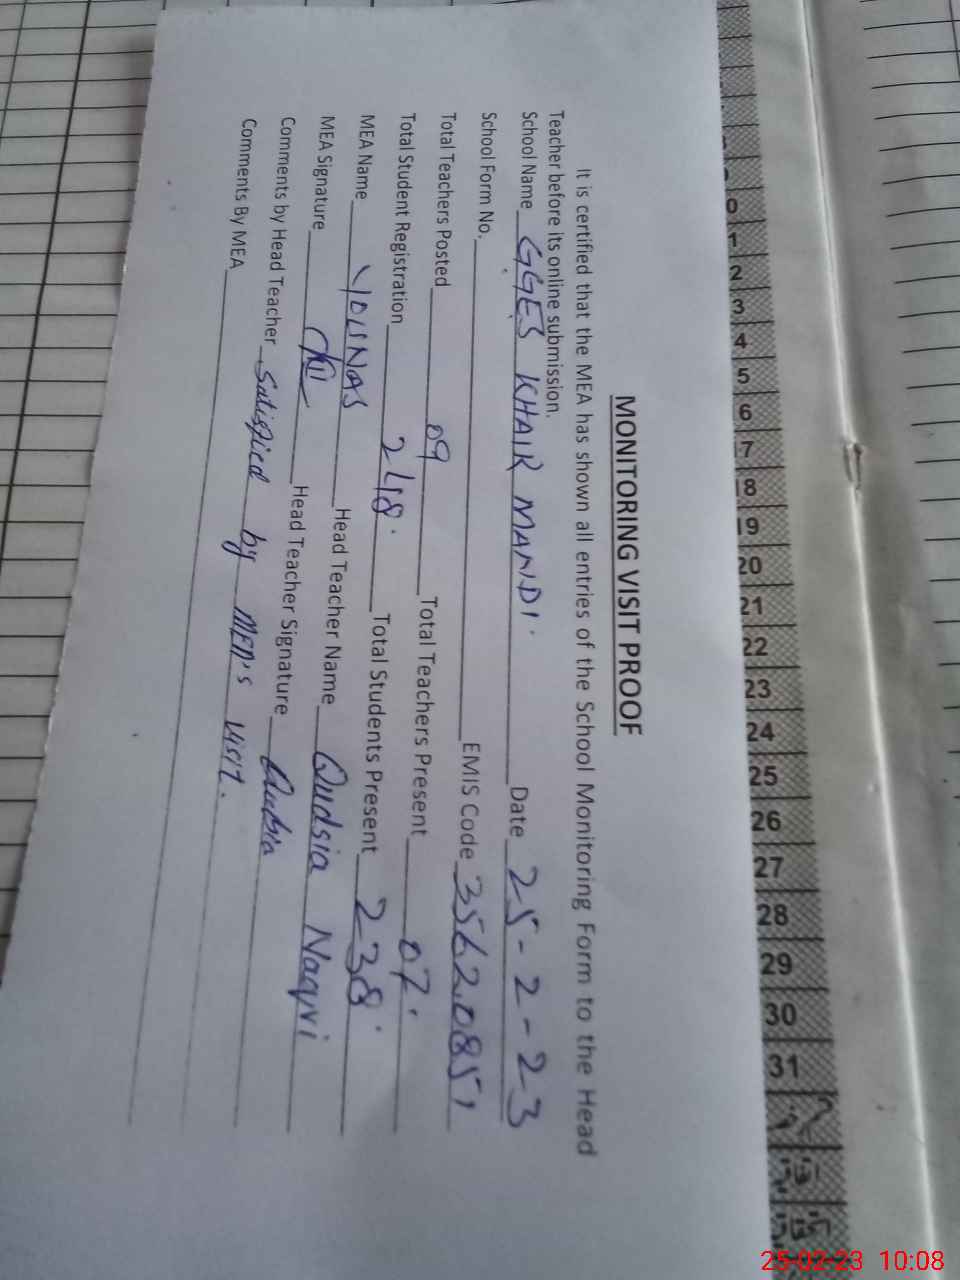 MONITORING VISIT PROOF
It is certified that the MEA has shown all entries of the School Monitoring Form to the Head
Teacher before its online submission.
School Name GGES KHAIR MANDI. Date 25-2-23
School Form No. EMIS Code 35620851
Total Teachers Posted 09 Total Teachers Present 07.
Total Student Registration 248. Total Students Present 238.
MEA Name YOUNAS Head Teacher Name Qudsia Naqvi
MEA Signature Head Teacher Signature Qudsia
Comments by Head Teacher Satisfied by MEA's visit.
Comments By MEA
0
1
2
3
4
5
6
17
18
19
20
21
22
23
24
25
26
27
28
29
30
31
25-02-23 10:08